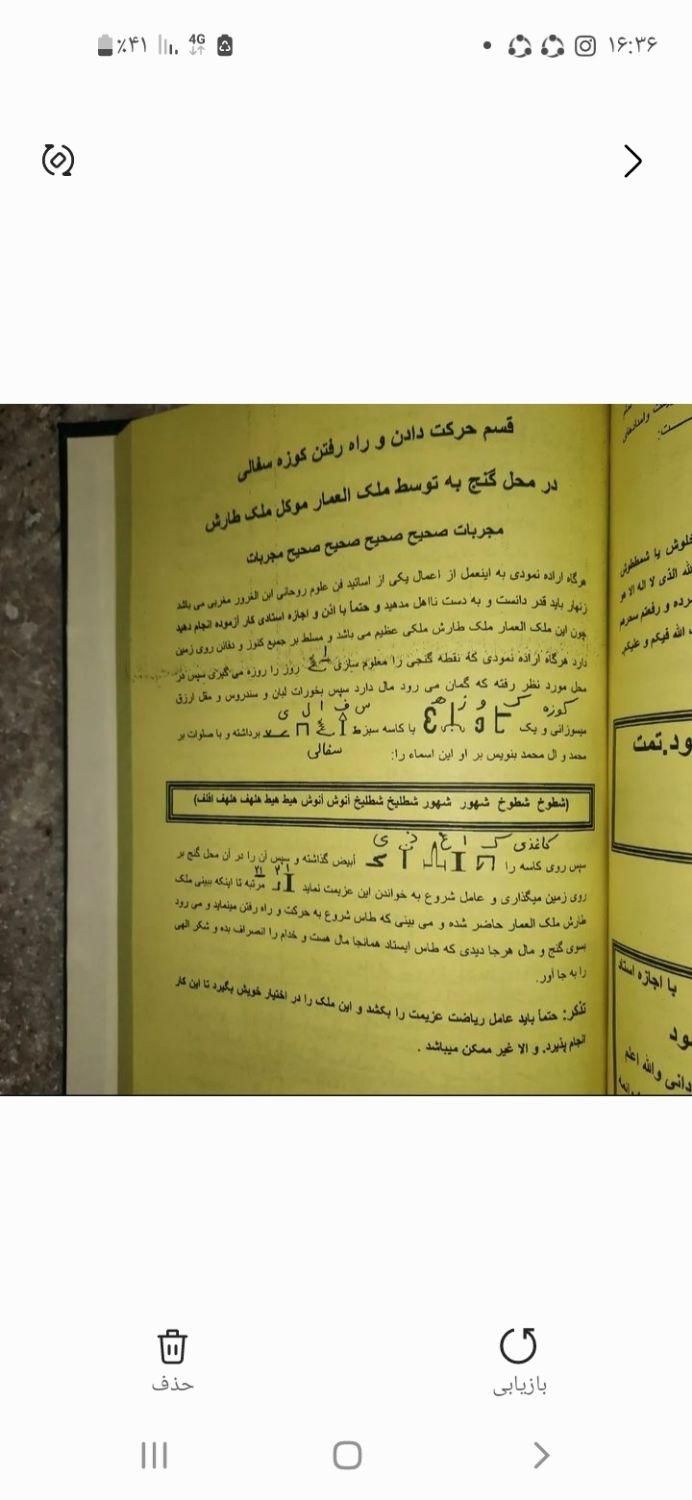 ۱۶:۳۶
4G
٪۴۱
قسم حرکت دادن و راه رفتن کوزه سفالی
در محل گنج به توسط ملک العمار موکل ملک طارش
مجربات صحیح صحیح صحیح صحیح مجربات
هرگاه اراده نمودی به اینعمل از اعمال یکی از اساتید فن علوم روحانی ابن الغرور مغربی می باشد
زنهار باید قدر دانست و به دست نااهل مدهید و حتماً با اذن و اجازه استادی کار آزموده انجام دهید
چون این ملک العمار ملک طارش ملکی عظیم می باشد و مسلط بر جمیع کنوز و دفائن روی زمین
دارد هرگاه اراده نمودی که نقطه گنجی را معلوم سازی روز را روزه می گیری سپس در
محل مورد نظر رفته که گمان می رود مال دارد سپس بخورات لبان و سندروس و مقل ازرق
کوزه ک و ز ه س ف ا ل ی
میسوزانی و یک یا کاسه سبز برداشته و با صلوات بر
سفالی
محمد و ال محمد بنویس بر او این اسماء را:
(شطوخ شطوخ شهور شهور شطلیخ شطلیخ أنوش أنوش هیط هیط هلهف هلهف افلف)
کاغذی ک ا غ ذ ی
سپس روی کاسه را ابیض گذاشته و سپس آن را در آن محل گنج بر
روی زمین میگذاری و عامل شروع به خواندن این عزیمت نماید ۲۱ مرتبه تا اینکه ببینی ملک
طارش ملک العمار حاضر شده و می بینی که طاس شروع به حرکت و راه رفتن مینماید و می رود
بسوی گنج و مال هرجا دیدی که طاس ایستاد همانجا مال هست و خدام را انصراف بده و شکر الهی
را به جا آور.
تذکر: حتماً باید عامل ریاضت عزیمت را بکشد و این ملک را در اختیار خویش بگیرد تا این کار
انجام پذیرد. و الا غیر ممکن میباشد .
ود.تمت
با اجازه استاد
حذف
بازیابی